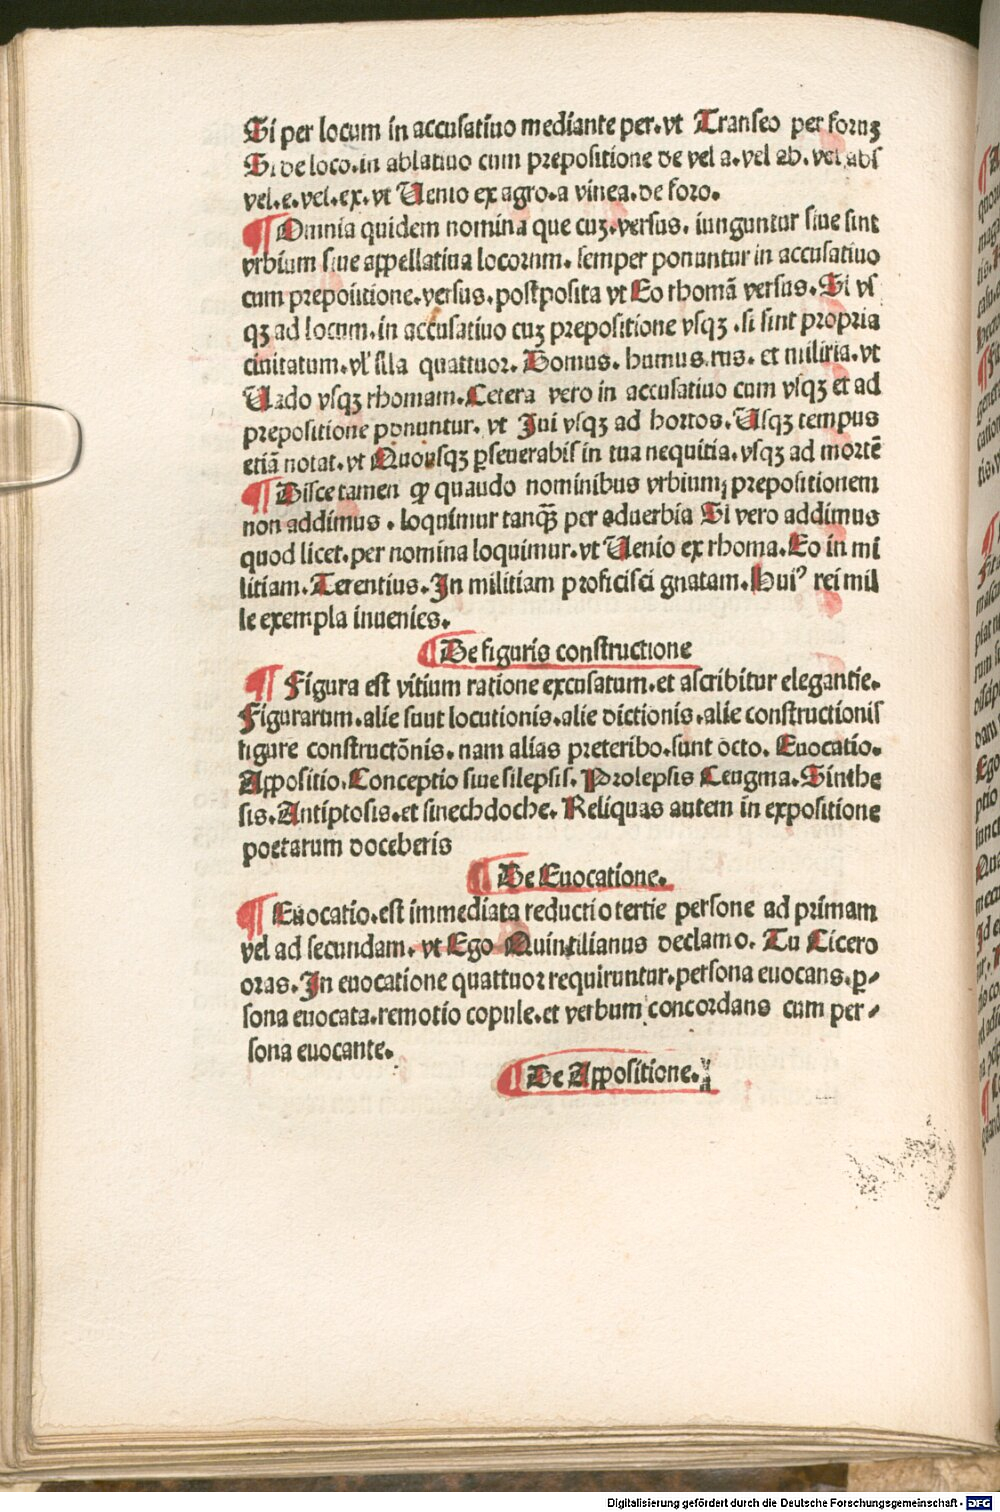 Si per locum in accusatiuo mediante per. vt Transeo per foruꝫ
Si de loco. in ablatiuo cum prepositione de vel a. vel ab. vel abs
vel. e. vel. ex. vt Uenio ex agro. a vinea. de foro.
¶ Omnia quidem nomina que cuꝫ. versus. iunguntur siue sint
vrbium siue appellatiua locorum. semper ponuntur in accusatiuo
cum prepositione. versus. postposita vt Eo rhomā versus. Si vs
qꝫ ad locum. in accusatiuo cuꝫ prepositione vsqꝫ. si sint propria
ciuitatum. vl' illa quattuor. Domus. humus. rus. et militia. vt
Uado vsqꝫ rhomam. Cetera vero in accusatiuo cum vsqꝫ et ad
prepositione ponuntur. vt Iui vsqꝫ ad hortos. Usqꝫ tempus
etiā notat. vt Quousqꝫ ꝑseuerabis in tua nequitia. vsqꝫ ad mortē
¶ Disce tamen ꝙ quaudo nominibus vrbium; prepositionem
non addimus. loquimur tanqꝫ̄ per aduerbia Si vero addimus
quod licet. per nomina loquimur. vt Uenio ex rhoma. Eo in mi
litiam. Terentius. In militiam proficisci gnatam. Huiꝰ rei mil
le exempla inuenies.
¶ De figuris constructione
¶ Figura est vitium ratione excusatum. et ascribitur elegantie.
Figurarum. alie sunt locutionis. alie dictionis. alie constructionis
figure constructōnis. nam alias preteribo. sunt octo. Euocatio.
Appositio. Conceptio siue silepsis. Prolepsis Ceugma. Sinthe
sis. Antiptosis. et sinechdoche. Reliquas autem in expositione
poetarum doceberis
¶ De Euocatione.
¶ Euocatio. est immediata reductio tertie persone ad primam
vel ad secundam. vt Ego Quintilianus declamo. Tu Cicero
oras. In euocatione quattuor requiruntur. persona euocans. ꝑ-
sona euocata. remotio copule. et verbum concordans cum per-
sona euocante.
¶ De Appositione.
Digitalisierung gefördert durch die Deutsche Forschungsgemeinschaft - DFG